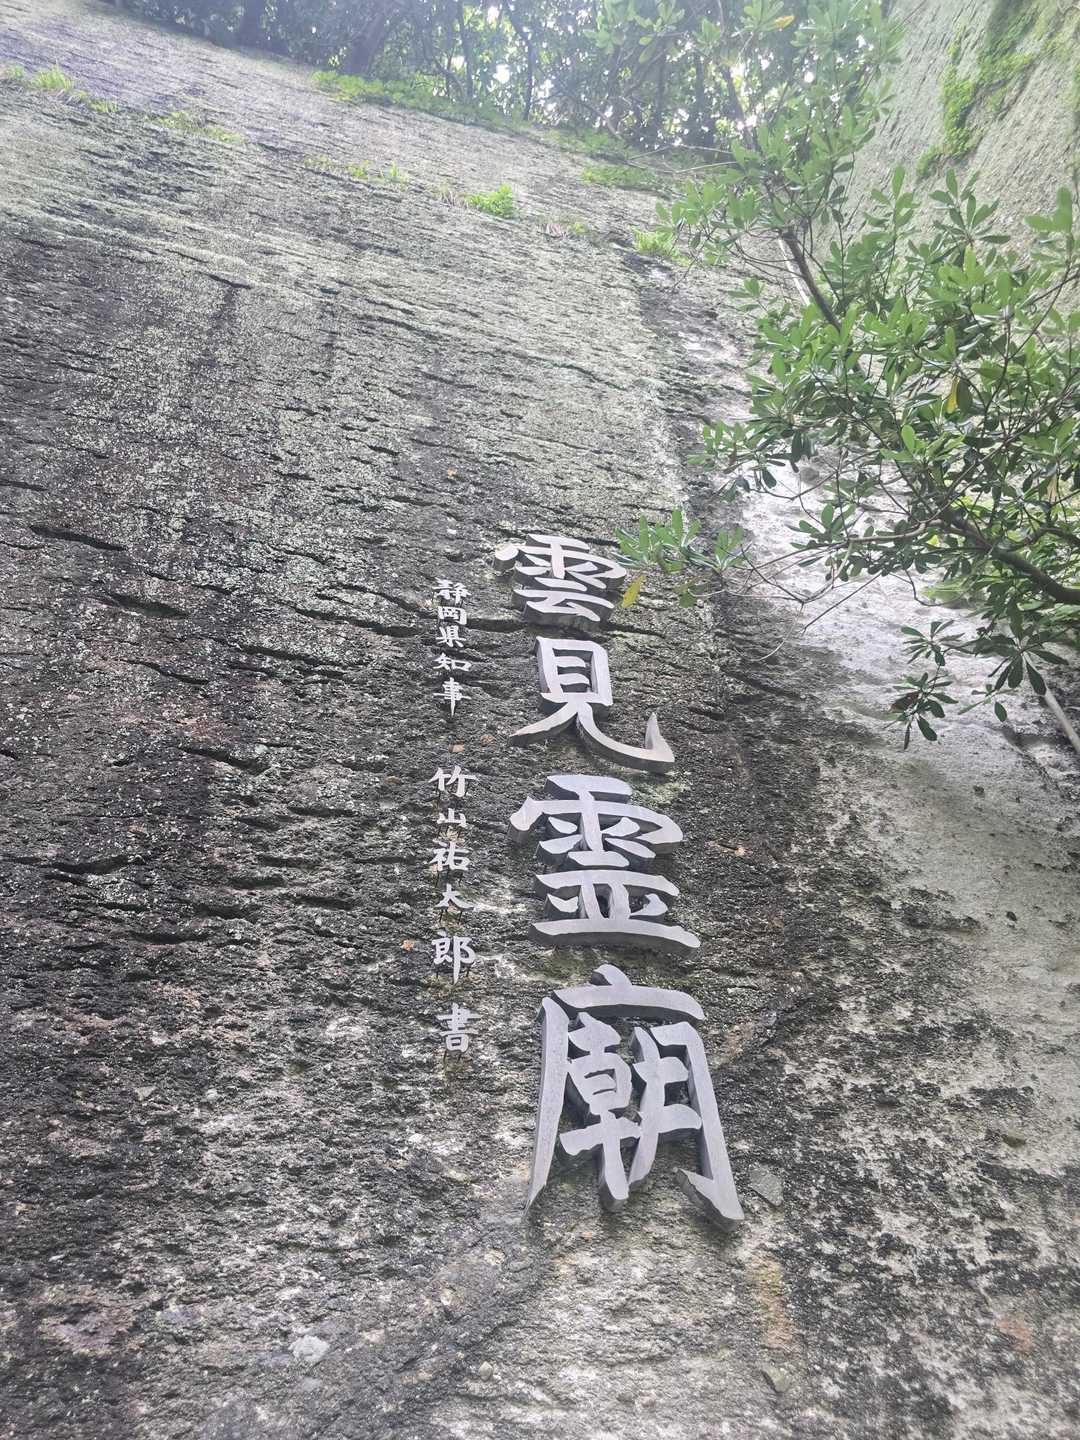 雲見霊廟
静岡県知事 竹山祐太郎書